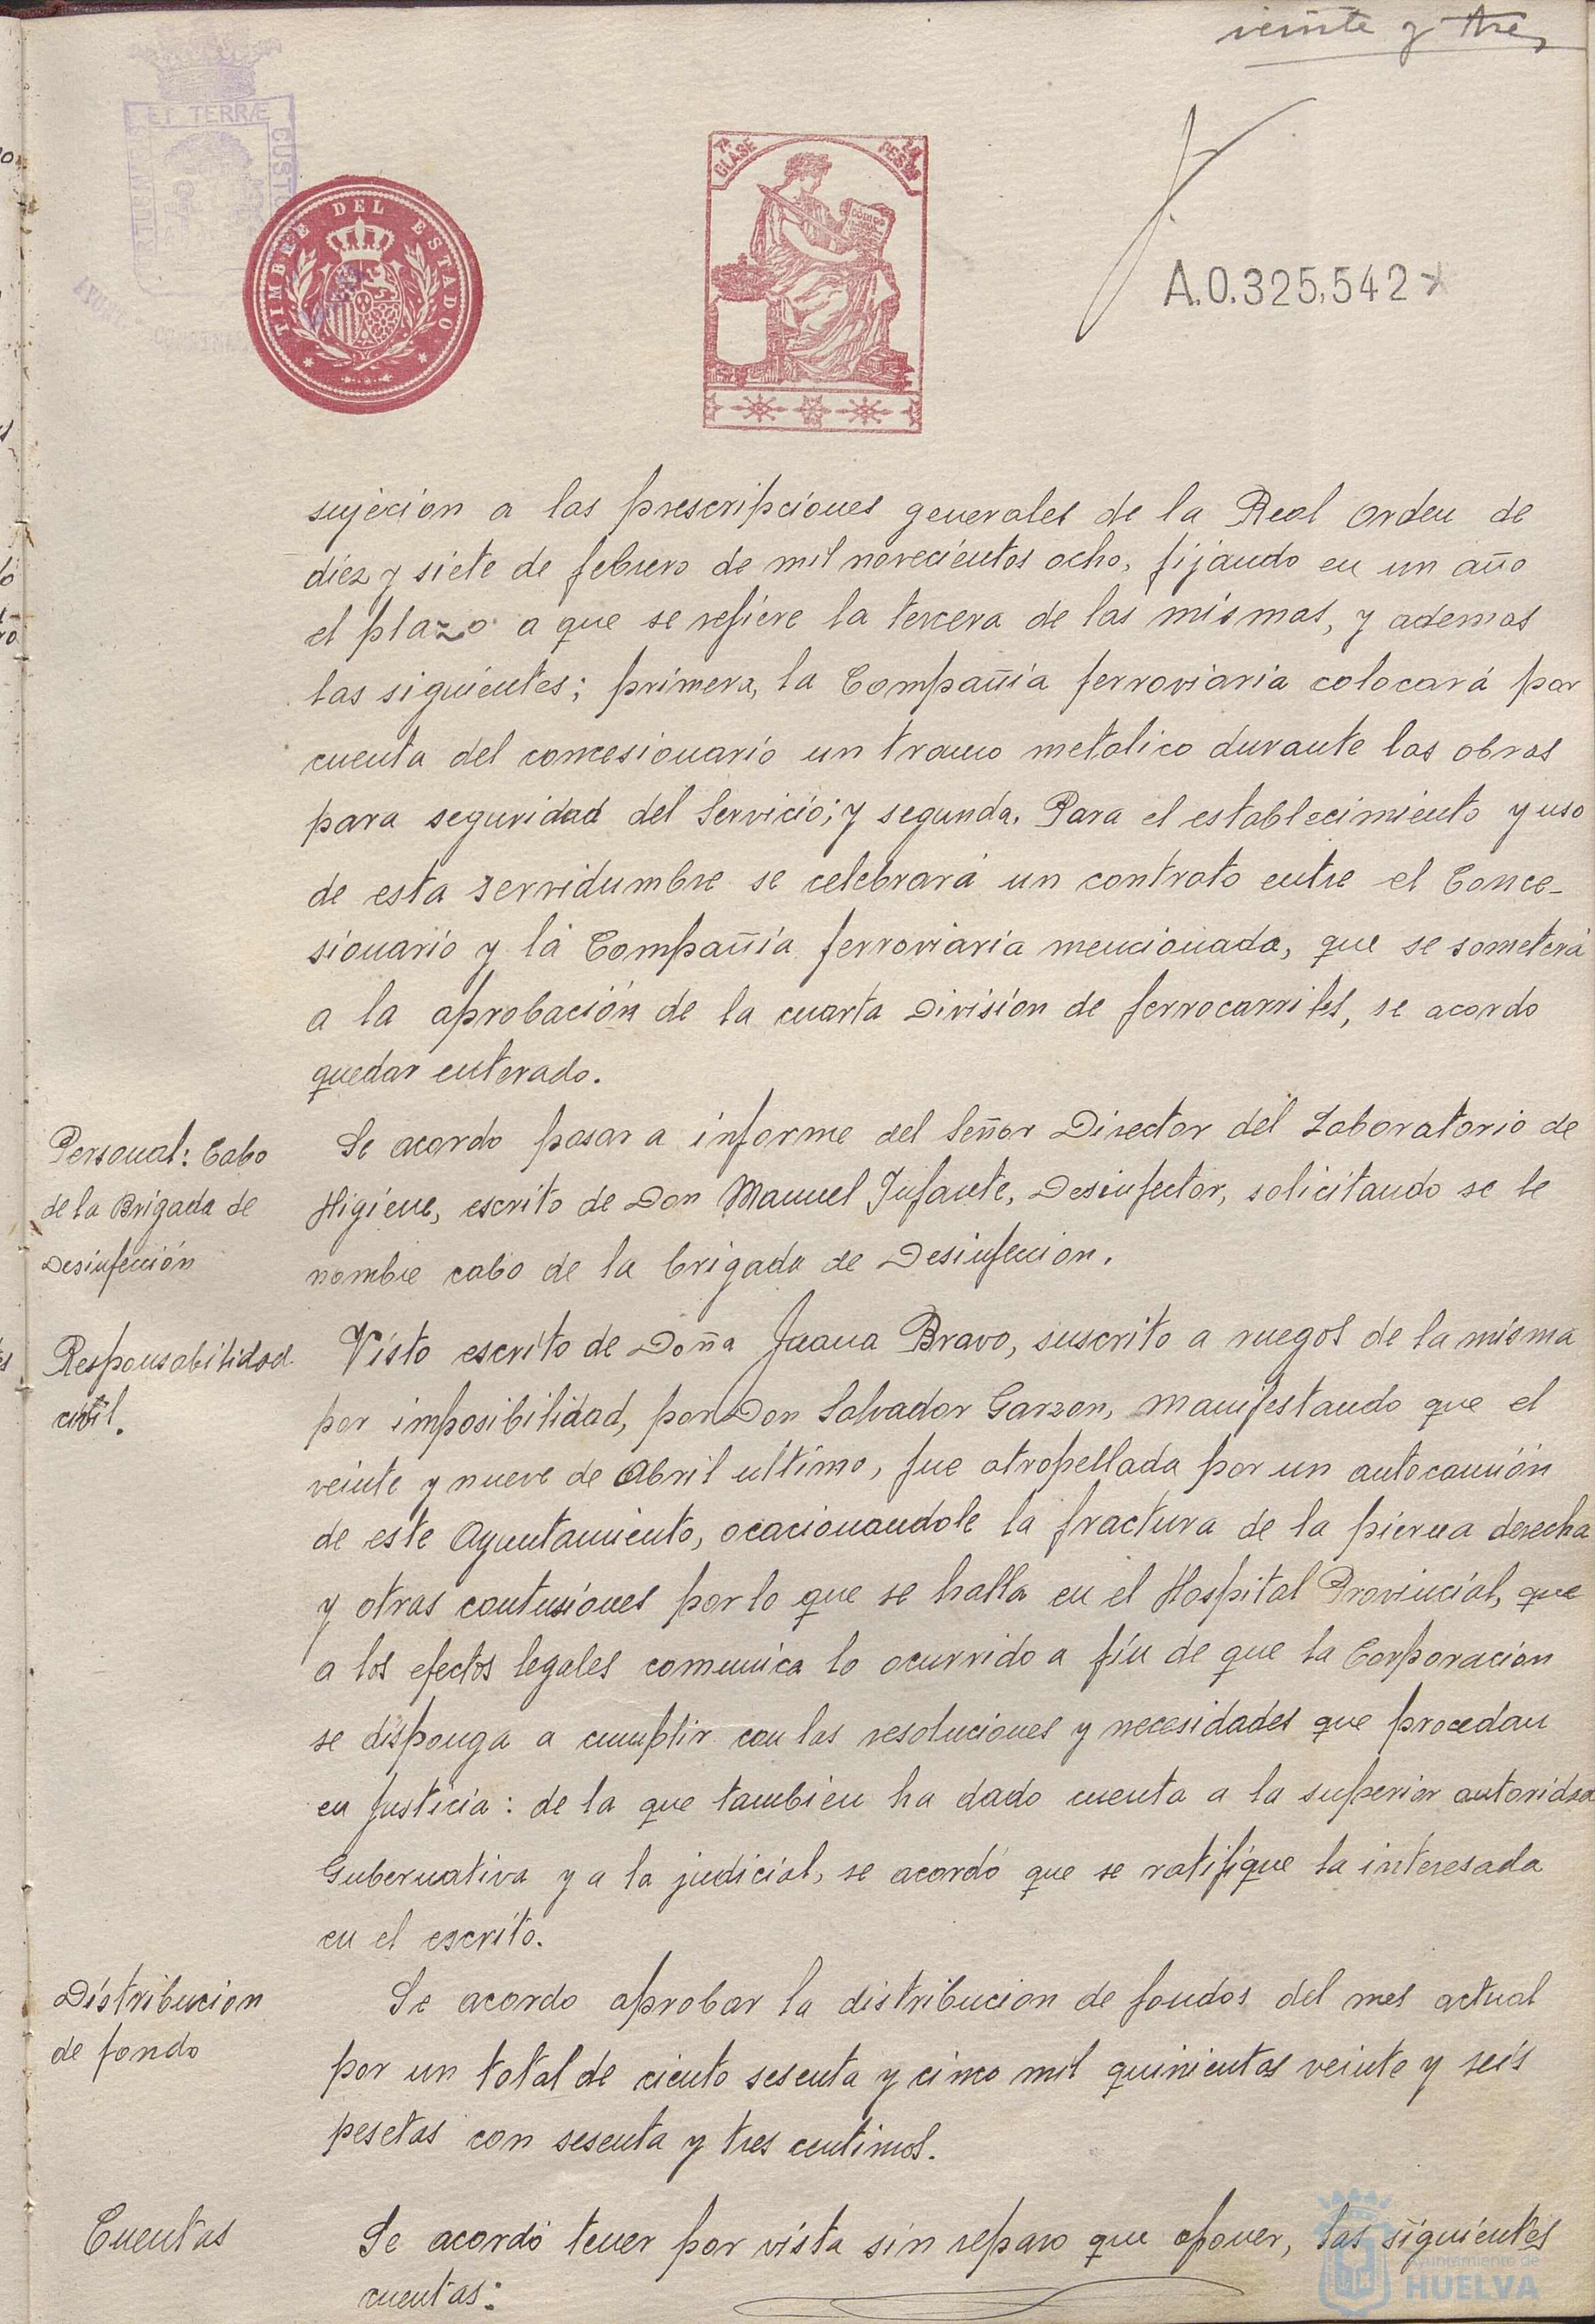 veinte y tres
ET TERRÆ
CUSTO
TIMBRE DEL ESTADO
7ª CLASE
PESETAS
A.0.325,542
sujecion a las prescripciones generales de la Real orden de
diez y siete de febrero de mil novecientos ocho, fijando en un año
el plazo a que se refiere la tercera de las mismas, y ademas
las siguientes; primera, la Compañia ferroviaria colocará por
cuenta del concesionario un tramo metalico durante las obras
para seguridad del servicio; y segunda. Para el establecimiento y uso
de esta servidumbre se celebrará un contrato entre el Conce-
sionario y la Compañia ferroviaria mencionada, que se someterá
a la aprobación de la cuarta Division de ferrocarriles, se acordo
quedar enterado.
Personal: Cabo
de la Brigada de
Desinfección
Se acordo pasar a informe del Señor Director del Laboratorio de
Higiene, escrito de Don Manuel Infante, Desinfector, solicitando se le
nombre cabo de la brigada de Desinfeccion.
Responsabilidad
civil.
Visto escrito de Doña Juana Bravo, suscrito a ruegos de la misma
por imposibilidad, por Don Salvador Garzon, manifestando que el
veinte y nueve de Abril ultimo, fue atropellada por un autocamión
de este Ayuntamiento, ocacionandole la fractura de la pierna derecha
y otras contusiones por lo que se halla en el Hospital Provincial, que
a los efectos legales comunica lo ocurrido a fin de que la Corporacion
se disponga a cumplir con las resoluciones y necesidades que procedan
en Justicia: de la que tambien ha dado cuenta a la superior autoridad
Gubernativa y a la judicial, se acordó que se ratifique la interesada
en el escrito.
Distribucion
de fondo
Se acordo aprobar la distribucion de fondos del mes actual
por un total de ciento sesenta y cinco mil quinientas veinte y seis
pesetas con sesenta y tres centimos.
Cuentas
Se acordó tener por vista sin reparo que oponer, las siguientes
cuentas:
Ayuntamiento de
HUELVA